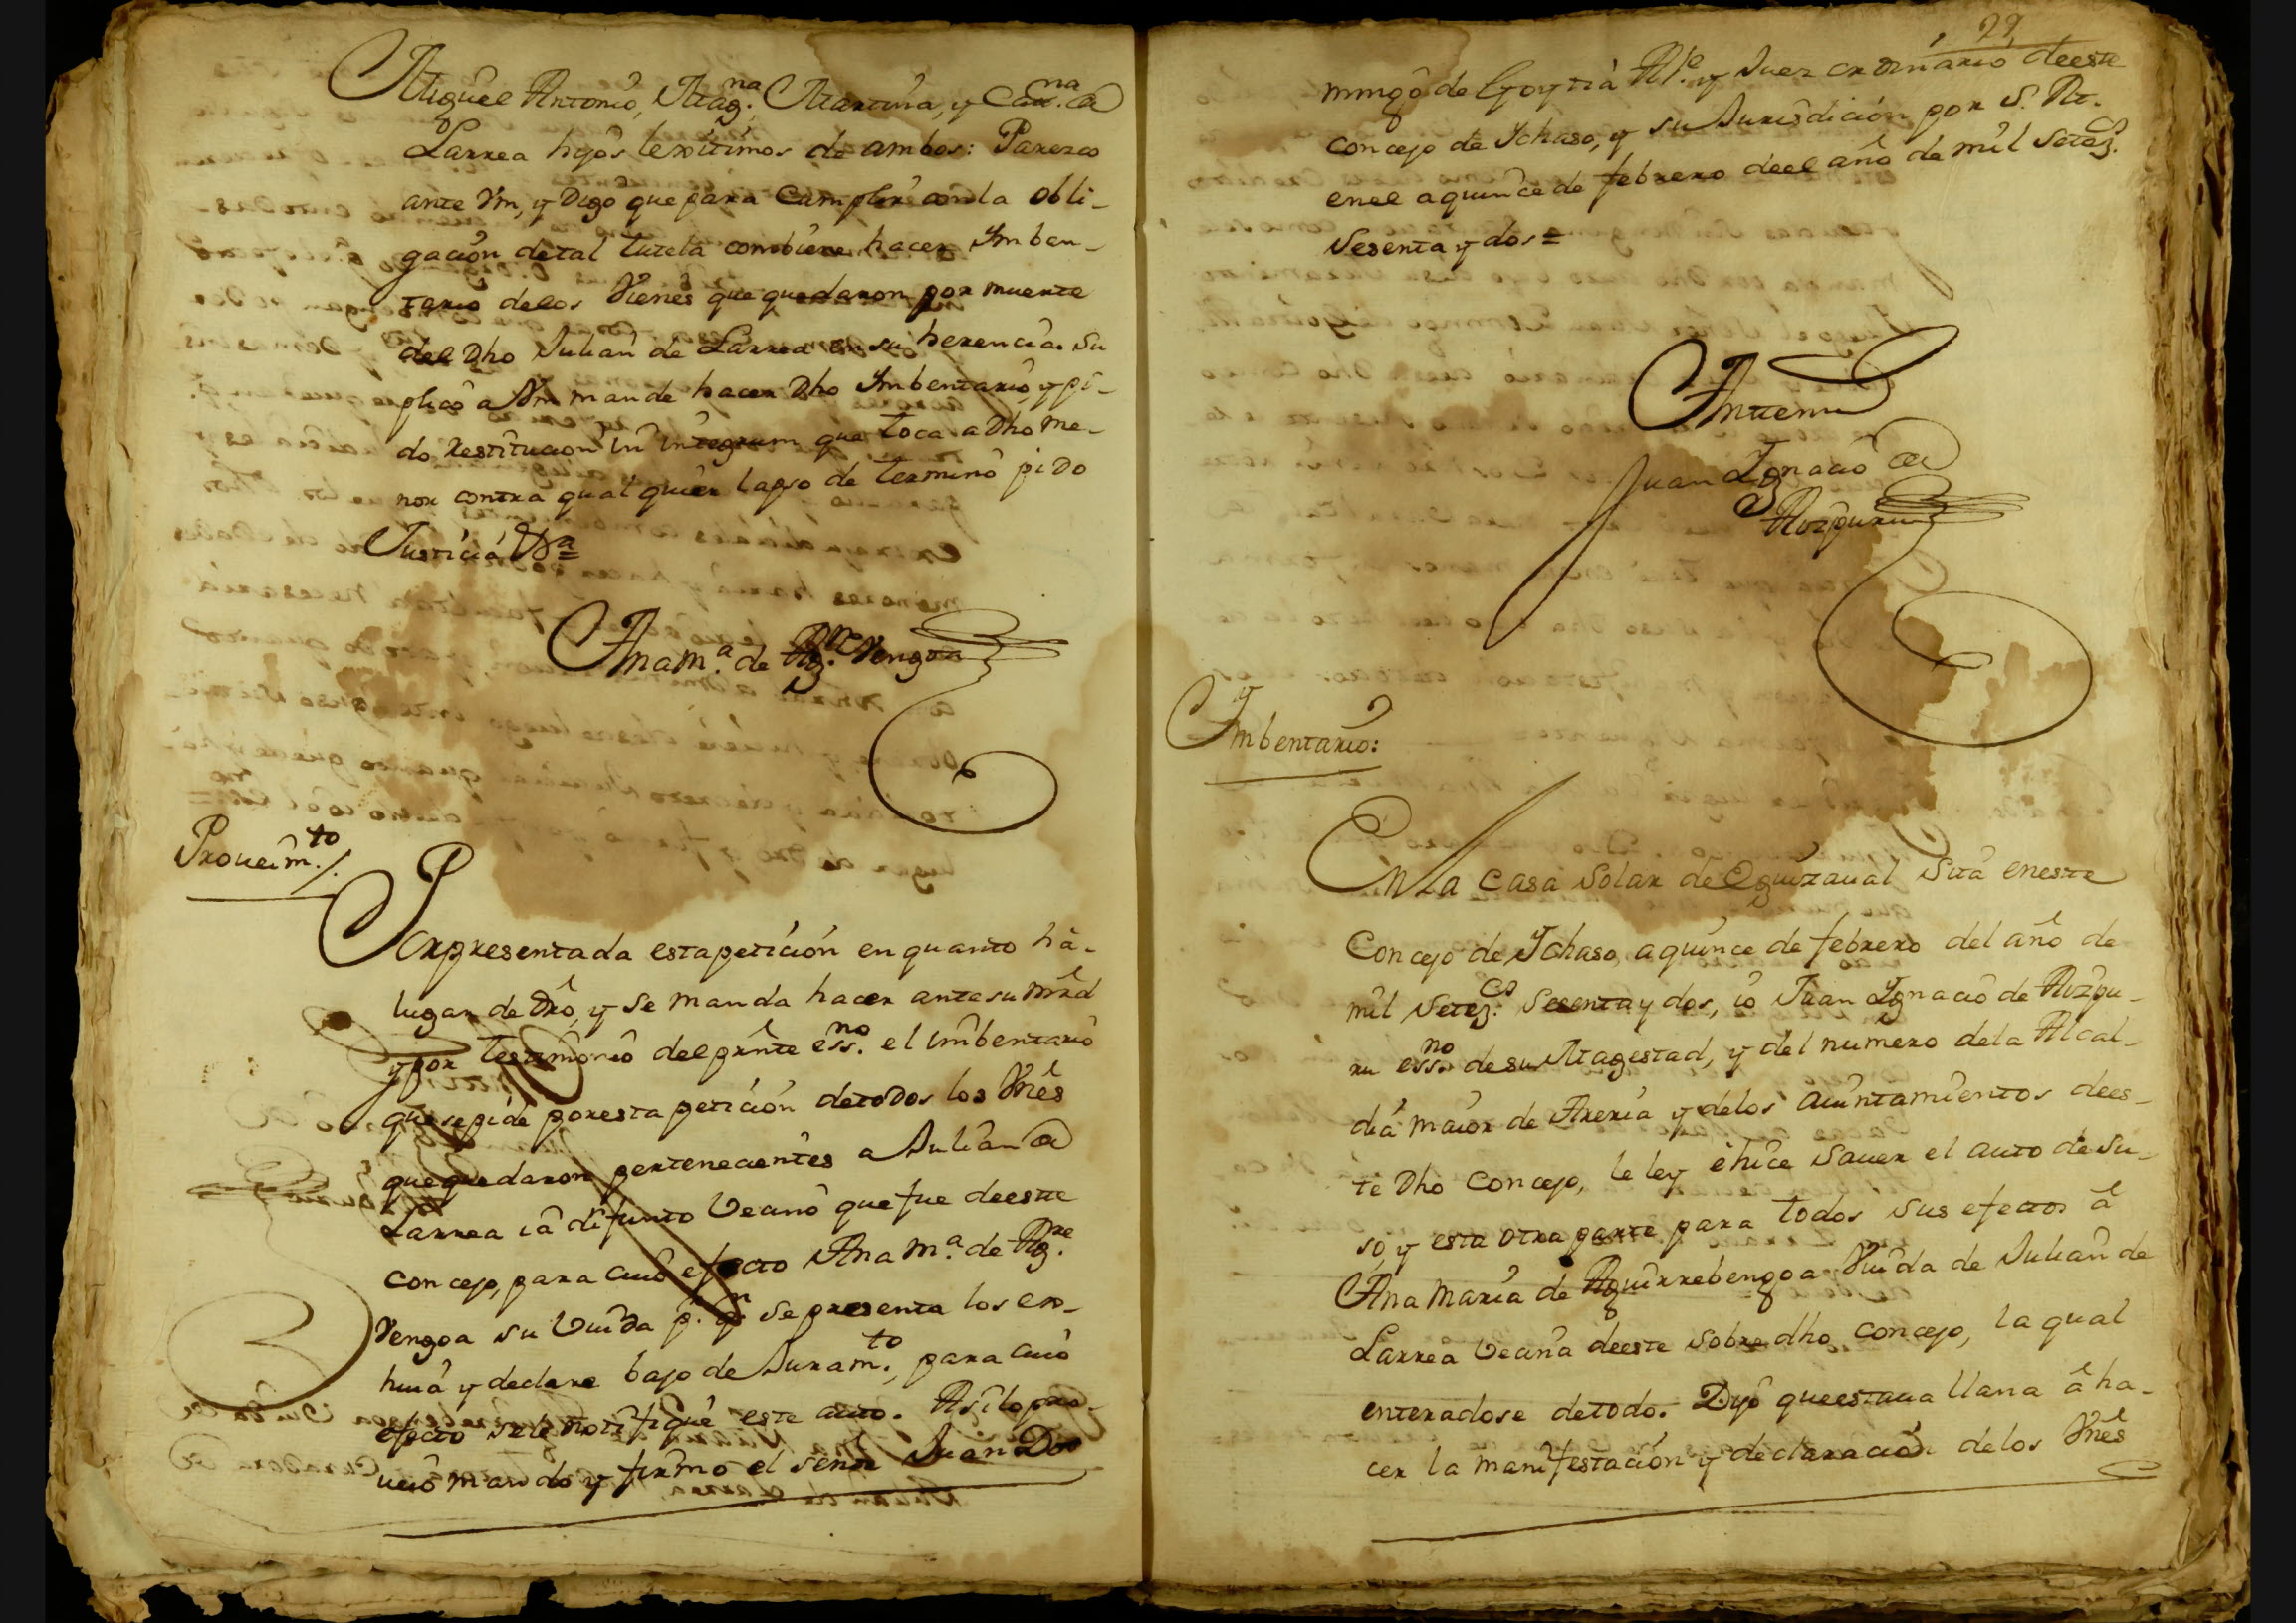 Miguel Antonio, Mag.na Martina, y Cat.na de
Larrea hijos lexitimos de ambos: Parezco
ante Vm, y Digo que para Cumplir con la obli-
gación detal tutela combiene hacer Ymben-
tario delos Vienes que quedaron por muerte
del Dho Julian de Larrea en su herencia. Su
plico a Vm mande hacer Dho Ymbentario, y pi-
do restitucion in integrum que toca a Dho Me-
nor contra qual quier lapso de termino pido
Justicia &a=
Ana M.a de Ag.rre Vengoa
Proueim.to/.
Por presentada esta petición en quanto há-
lugar de Dro, y Se manda hacer ante su mrd
y por testimonio deel prsnte ess.no el imbentario
que se pide por esta petición detodos los Vnes
que quedaron pertenecientes a Julian de
Larrea ia difunto Vecino que fue deeste
Concejo, para cuio efecto Ana M.a de Ag.rre
Vengoa su Viuda p.r q.n se presenta los ex-
hiua y declare bajo de Juram.to, para cuio
efecto sele notifique este auto. Asilo pro-
ueió mando y firmo el señor Juan Do
29
mingo de Goytia Al.e y Juez ordinario deeste
Concejo de Ychaso, y su Jurisdición por S. M.
enel a quince de febrero deel año de mil Setez.s
Sesenta y dos=
Antemi
Juan Ygnacio de
Aozpuru
Ymbentario:
En La Casa Solar de Eguizaual Sita eneste
Concejo de Ychaso, a quince de febrero del año de
mil Setez.cs Sesenta y dos, io Juan Ygnacio de Aozpu-
ru ess.no de su Magestad, y del numero dela Alcal-
día maior de Areria y delos aiuntamientos dees-
te Dho Concejo, le ley é hice Sauer el auto de su-
so y esta otra parte para todos sus efectos á
Ana Maria de Aguirrebengoa Viuda de Julian de
Larrea Vecina deeste Sobre dho Concejo, la qual
enteradose detodo. Dijo que estaua llana á ha-
cer la manifestación y declaración delos Vnes